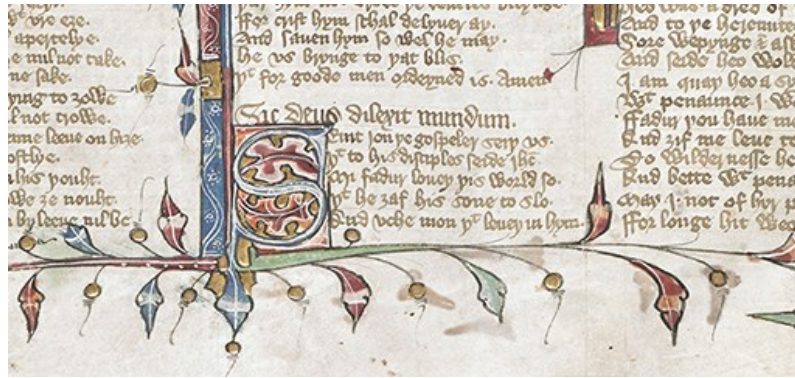 wt vre eze.
apertelye.
e mil not take.
me sake.
ying to zowe
l not trowe.
ame leeue on hire.
ostlye.
n his youht.
we ze nouht.
by leeue nil be
Ffor crist hym schal delyuer ay.
And sauen hym so wel he may.
he vs brynge to yat blis.
yt for goode men ordeyned is. Amen
Sic deus dilexit mundum.
Seint Jon ye gospeler seiy vs.
yt to his disciples seide ihc.
Mi fadur louey yis world so.
yt he zaf his sone to slo.
And vche mon yt louey in hym
And to ye heremite
Sore wepynge &
And seide heo wol
I. am quay heo a sy
Wt penaunce. I. w
Ffadur you haue me
And zif me leue t
To wildernesse
And bette wt pena
May. I. not of hyr
Ffor longe hit